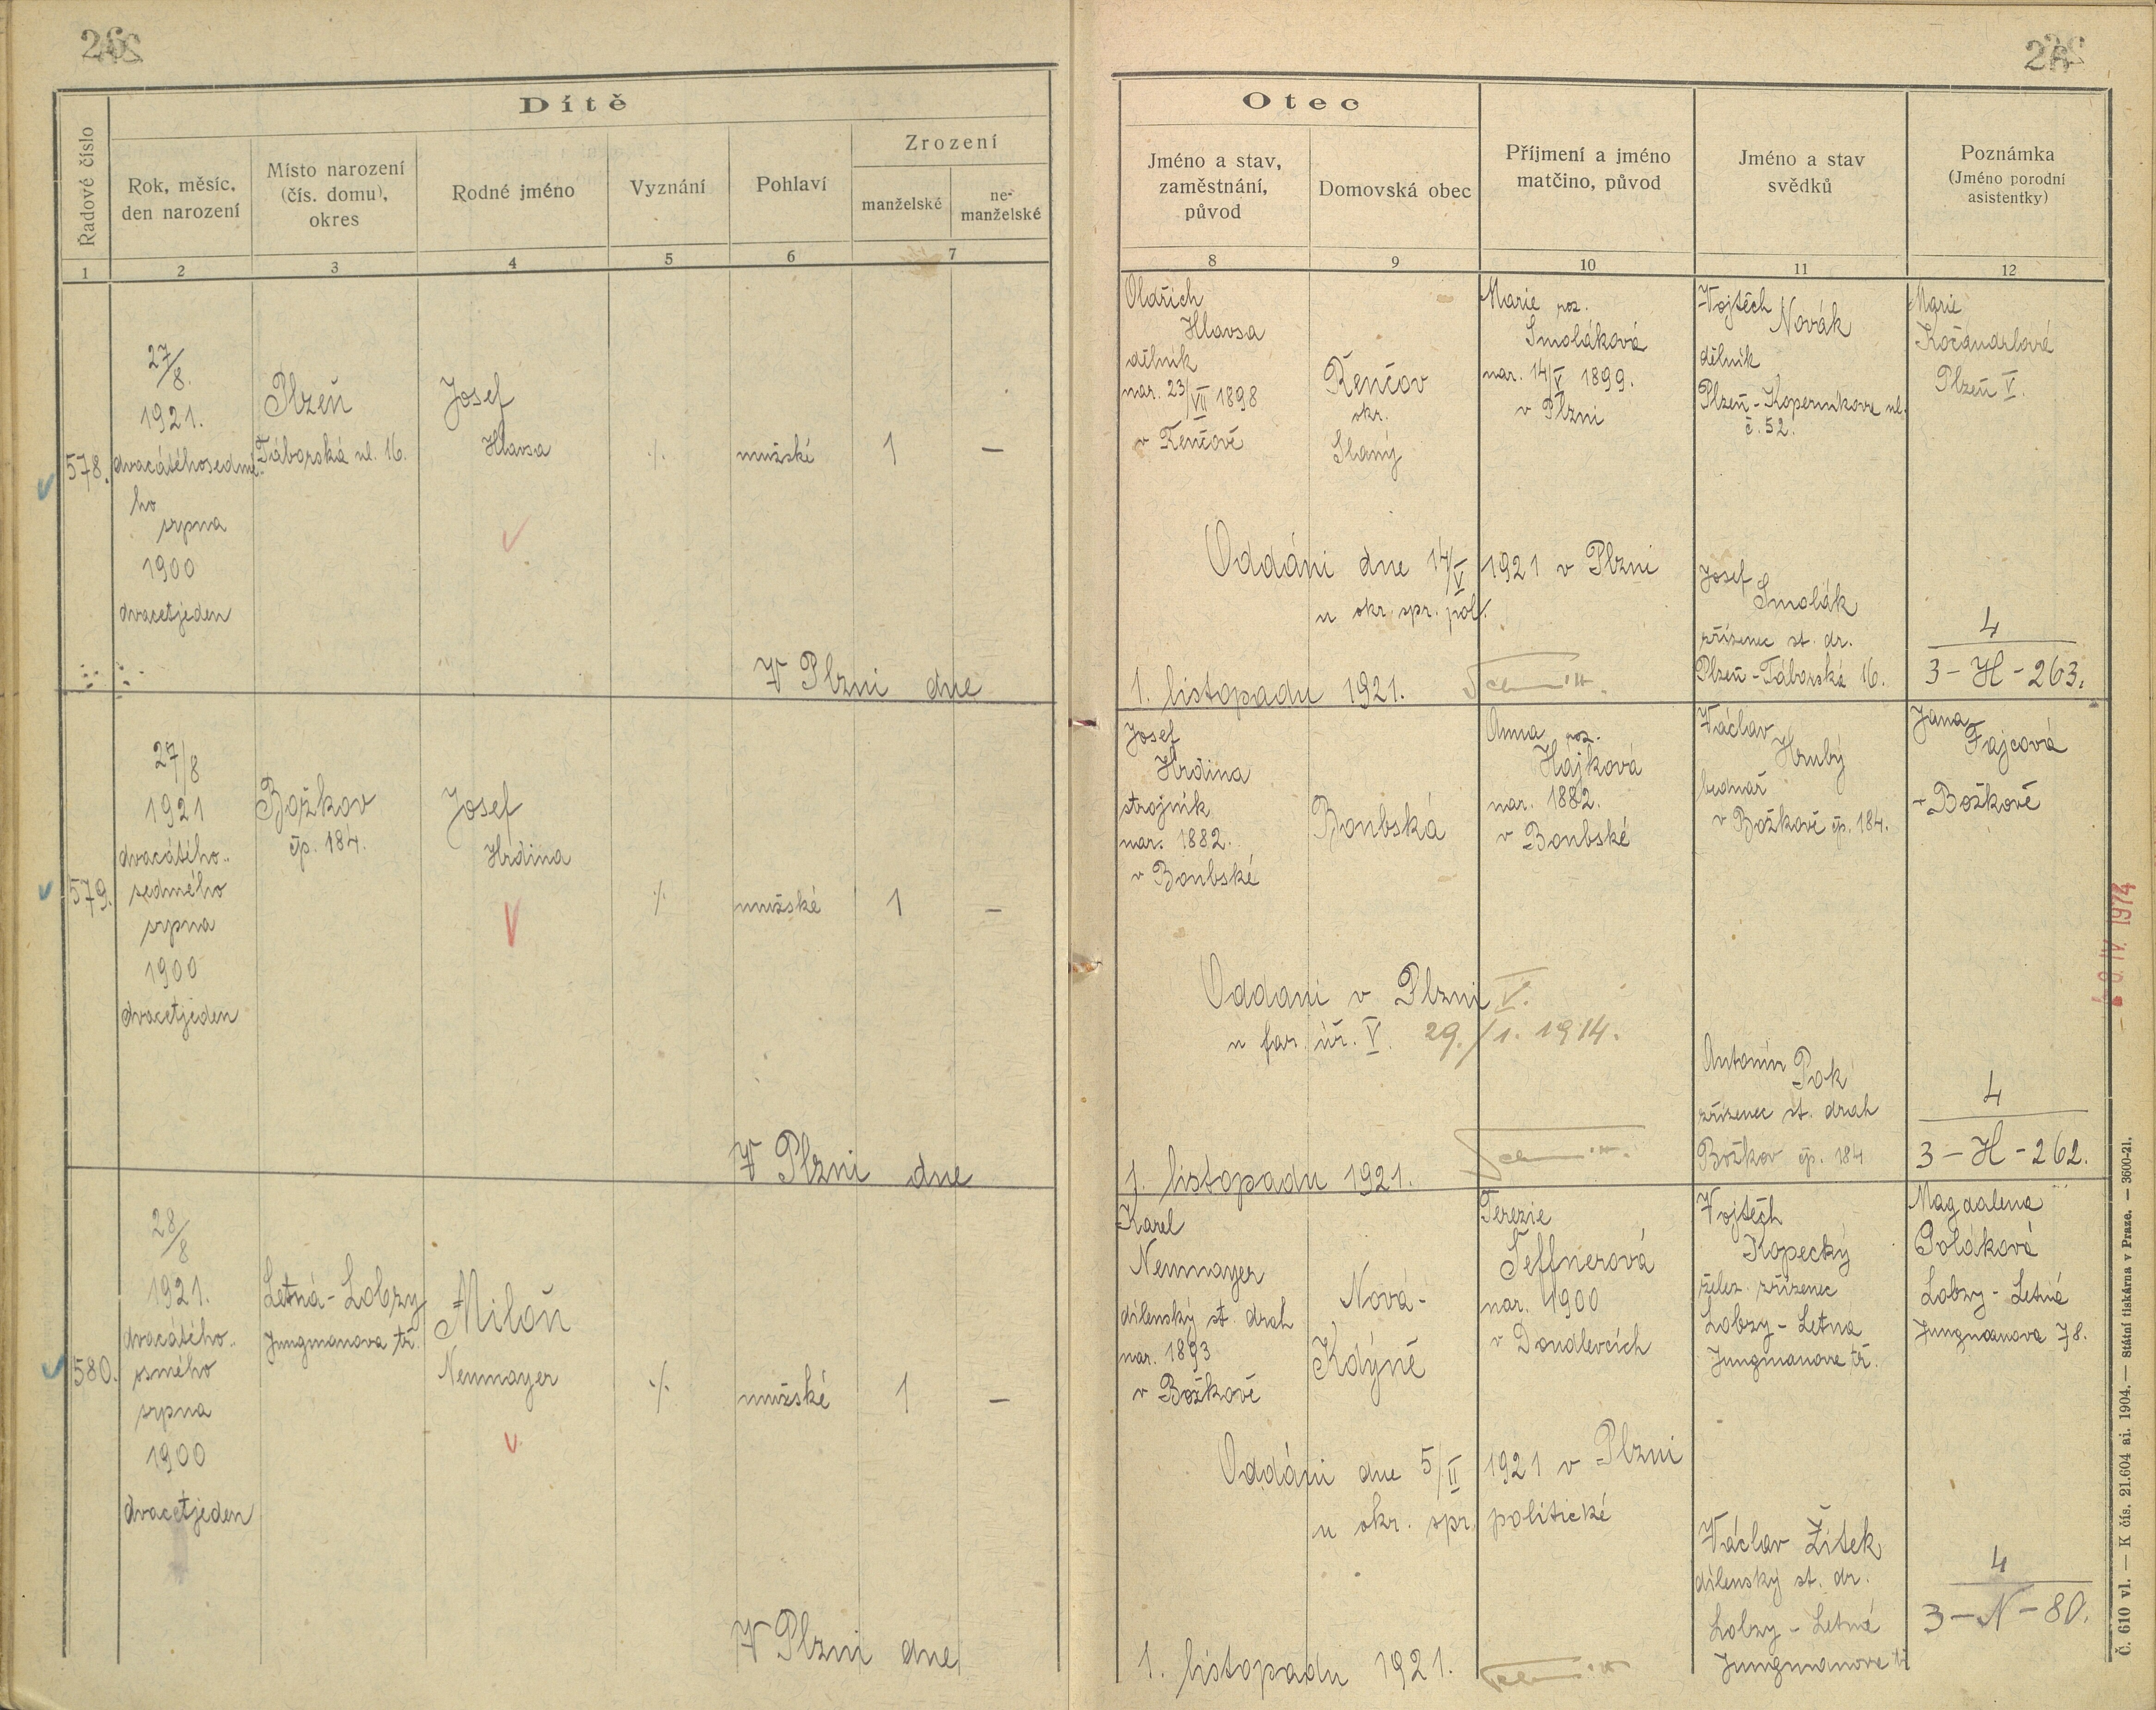 26
Dítě
Řadové číslo
Rok, měsíc,
den narození
Místo narození
(čís. domu),
okres
Rodné jméno
Vyznání
Pohlaví
Zrození
manželské
ne-
manželské
1
2
3
4
5
6
7
578.
27/8.
1921.
dvacátéhosedmé-
ho
srpna
1900
dvacetjeden
Plzeň
Táborská ul. 16.
Josef
Hlavsa
./.
mužské
1
—
V Plzni dne
579.
27/8
1921
dvacátého-
sedmého
srpna
1900
dvacetjeden
Božkov
čp. 184.
Josef
Hrdina
./.
mužské
1
—
V Plzni dne
580.
28/8
1921.
dvacátého-
osmého
srpna
1900
dvacetjeden
Letná - Lobzy
Jungmanova tř.
Miloň
Neumayer
./.
mužské
1
—
V Plzni dne
26
Otec
Jméno a stav,
zaměstnání,
původ
Domovská obec
Příjmení a jméno
matčino, původ
Jméno a stav
svědků
Poznámka
(Jméno porodní
asistentky)
8
9
10
11
12
Oldřich
Hlavsa
dělník
nar. 23/VII 1898
v Řenčově
Řenčov
okr.
Slaný
Marie roz.
Smoláková
nar. 14/V 1899.
v Plzni
Vojtěch
Novák
dělník
Plzeň - Koperníkova ul.
č. 52.
Marie
Plzeň V.
Oddáni dne 14/V 1921 v Plzni
u okr. spr. pol.
Josef
Smolák
zřízenec st. dr.
Plzeň - Táborská 16.
4
3 - H - 263.
1. listopadu 1921.
Josef
Hrdina
strojník
nar. 1882.
v Boubské
Boubská
Anna roz.
Hájková
nar. 1882.
v Boubské
Václav
Hrubý
bednář
v Božkově čp. 184.
Jana
Fajcová
- Božkově
Oddáni v Plzni V.
u far. úř. V. 29./1. 1914.
Antonín
Pok
zřízenec st. drah
Božkov čp. 184
4
3 - H - 262.
1. listopadu 1921.
Karel
Neumayer
dílenský st. drah
nar. 1893
v Božkově
Nová-
Kdýně
Terezie
Šeffnerová
nar. 1900
v Doudlevcích
Vojtěch
Kopecký
želez. zřízenec
Lobzy - Letna
Jungmanova tř.
Magdalena
Poláková
Lobzy - Letná
Jungmanova 78.
Oddáni dne 5/II 1921 v Plzni
u okr. spr. politické
Václav Žitek
dílenský st. dr.
Lobzy - Letná
Jungmanova tř
4
3 - N - 80.
1. listopadu 1921.
Č. 610 vl. — K čís. 21.604 ai. 1904. — Státní tiskárna v Praze. — 3600-21.